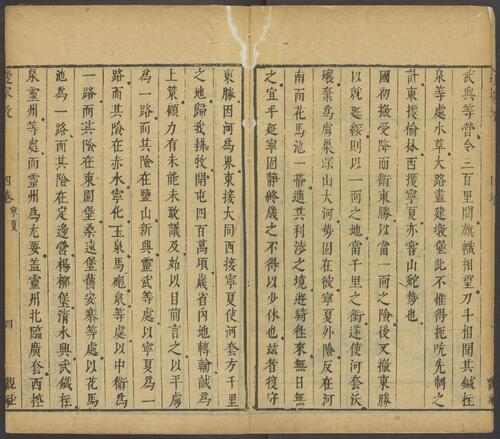 武興等營令三百里間旗幟相望刀斗相聞其鐵柱
泉等處水草大路盡建墩堡此不惟得扼吭先制之
計東援榆林西援寧夏亦常山蛇勢也
國初撤受降而衛東勝以當一面之險後又撤東勝
以就延綏則以一面之地當千里之衝遂使河套沃
壤棄為虜巢深山大河勢固在彼寧夏外險反在河
南而花馬池一帶適其利涉之境遊騎往來無日無
之宜乎延寧固靜終歲之不得以少休也茲者復守
東勝因河為界東接大同西接寧夏使河套方千里
之地歸我耕牧開屯四百萬頃歲省內地轉輸誠為
上策顧力有未能未敢議及姑以目前言之以平虜
為一路而其險在鹽山新興靈武等處以寧夏為一
路而其險在赤水寧化玉泉馬砲泉等處以中衛為
一路而其險在東園堡桑遠堡舊安寨等處以花馬
池為一路而其險在定邊營楊柳堡清水興武鐵柱
泉靈州等處而靈州為尤要蓋靈州北臨廣套西控
四卷 寧夏 四